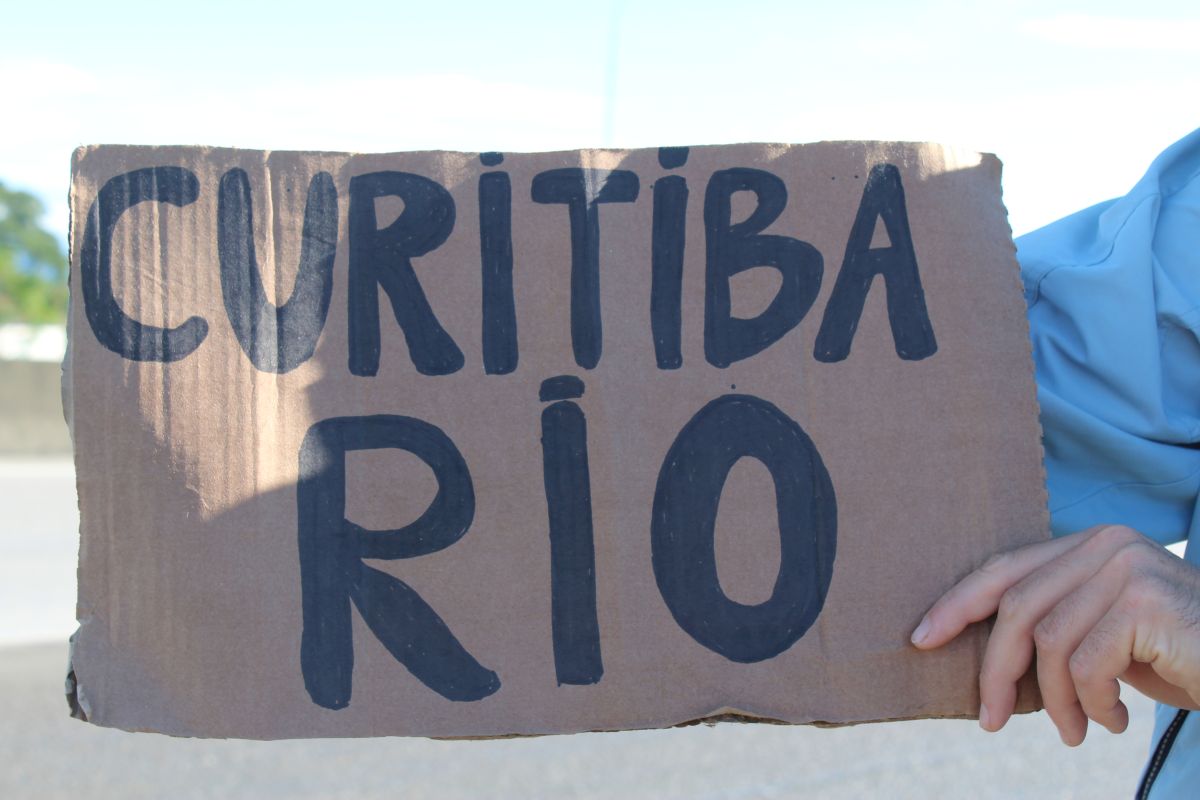 CURiTiBA
RiO